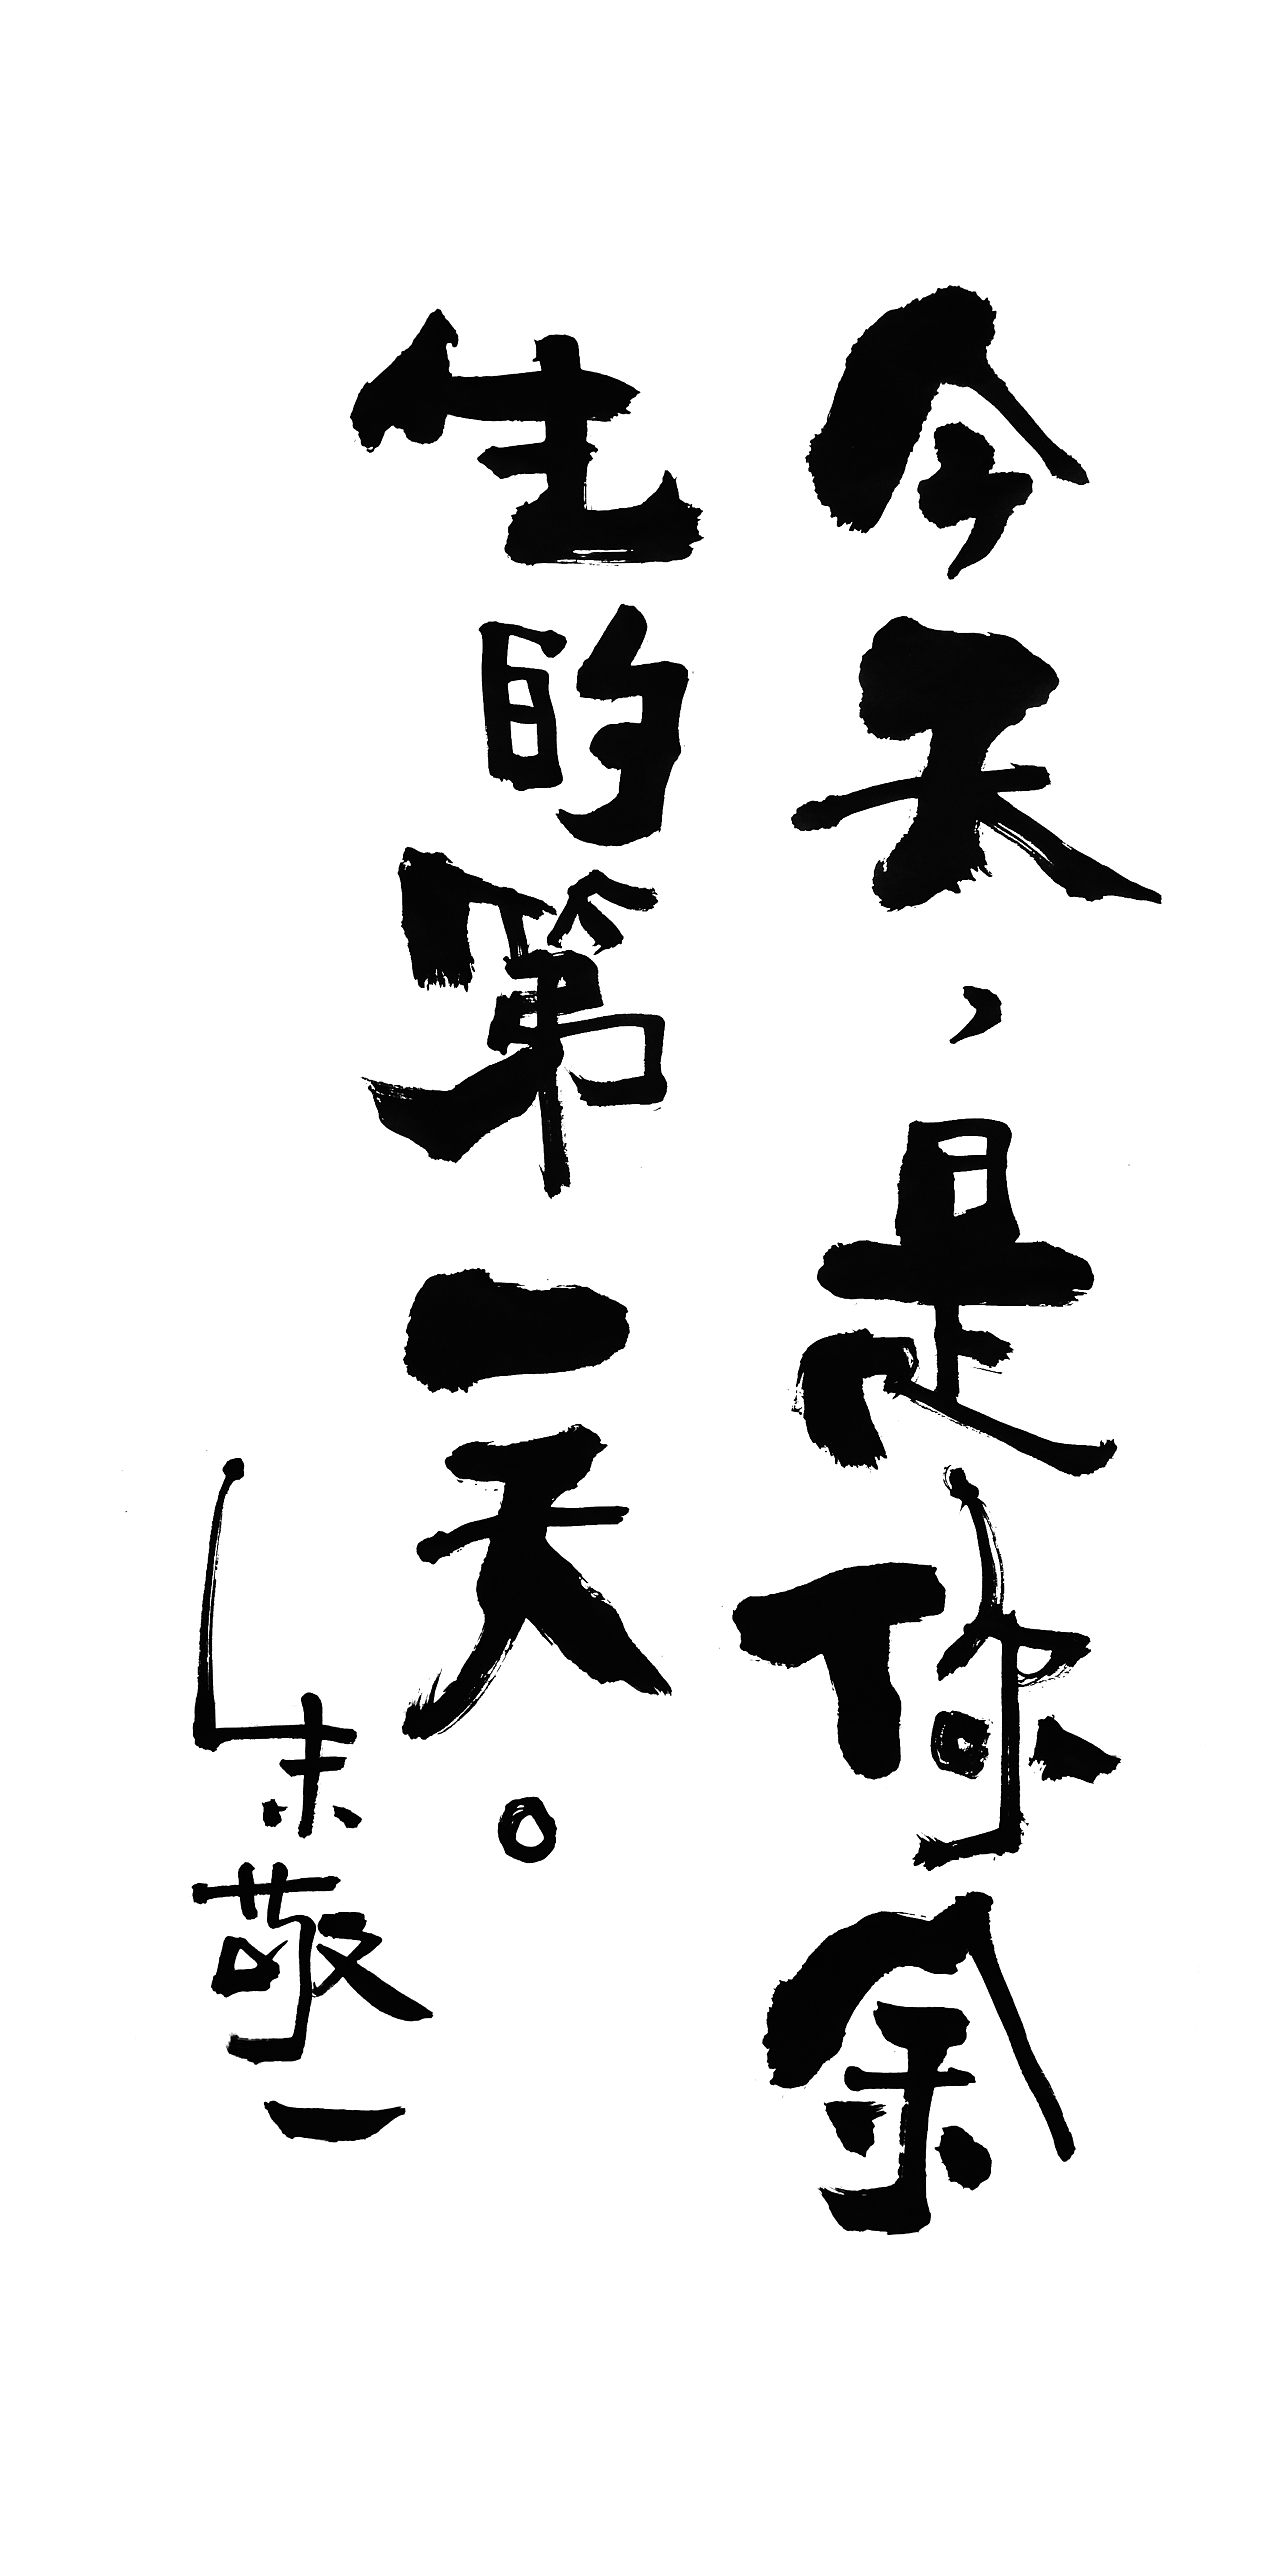 今天，是你余
生的第一天。
朱敬一